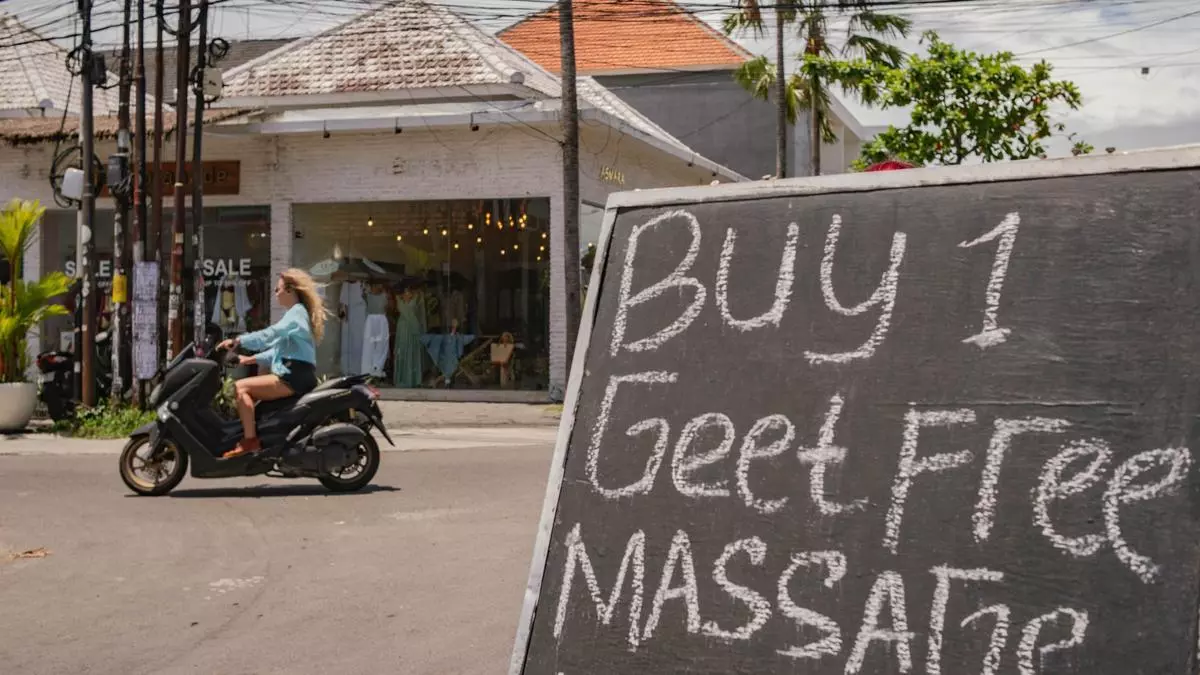 SALE
SALE
BUY 1
Geet Free
MASSAGe